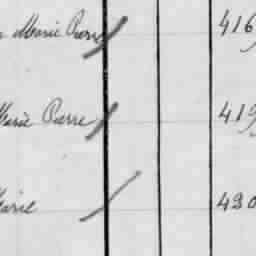 Marie Pierre 416
Marie Pierre 419
Marie 420